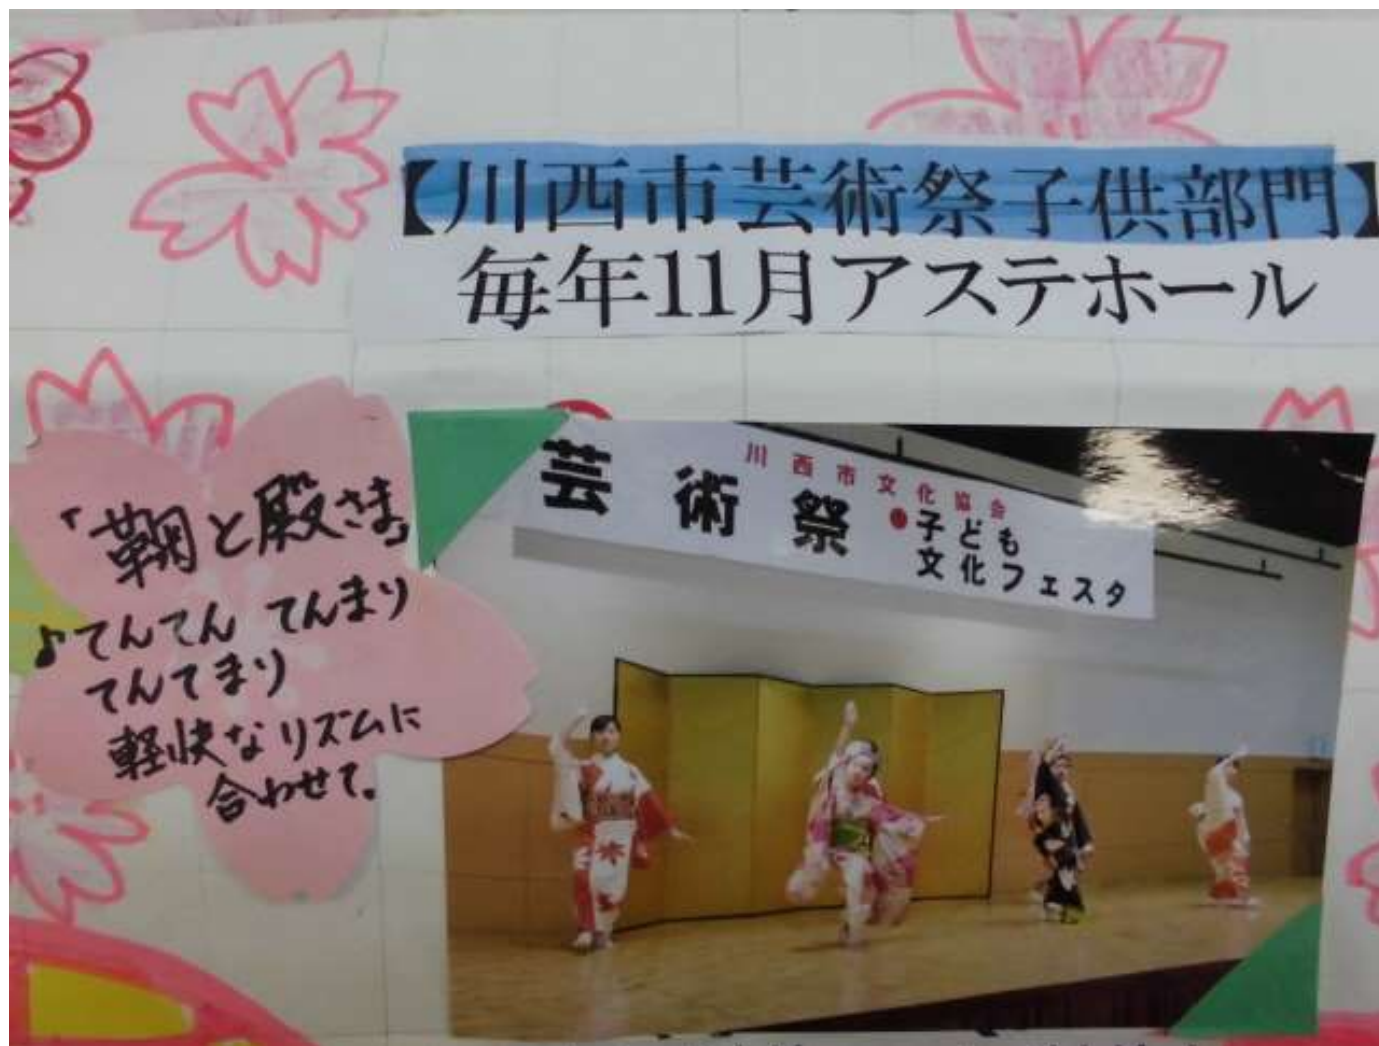 【川西市芸術祭子供部門】
毎年11月アステホール
「鞠と殿さま」
♪てんてん てんまり
てんてまり
軽快なリズムに
合わせて。
川西市文化協会
芸術祭
子ども
文化フェスタ